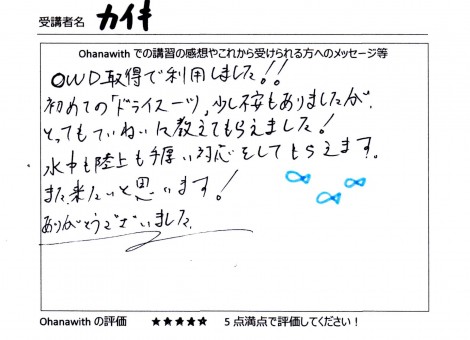 受講者名 カイキ
Ohanawith での講習の感想やこれから受けられる方へのメッセージ等
OWD取得で利用しました!!
初めての「ドライスーツ」少し不安もありましたが、
とってもていねいに教えてもらえました!
水中も陸上も手厚い対応をしてもらえます。
また来たいと思います!
ありがとうございました。
Ohanawith の評価 ★★★★★ 5 点満点で評価してください!